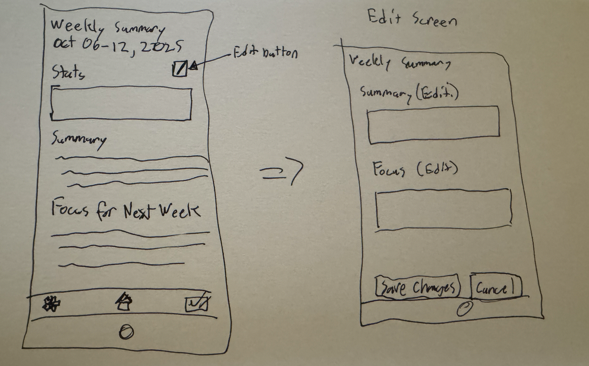 Weekly Summary
Oct 06-12, 2025
Stats
Edit button
Summary
Focus for Next Week
Edit Screen
Weekly Summary
Summary (Edit)
Focus (Edit)
Save Changes
Cancel